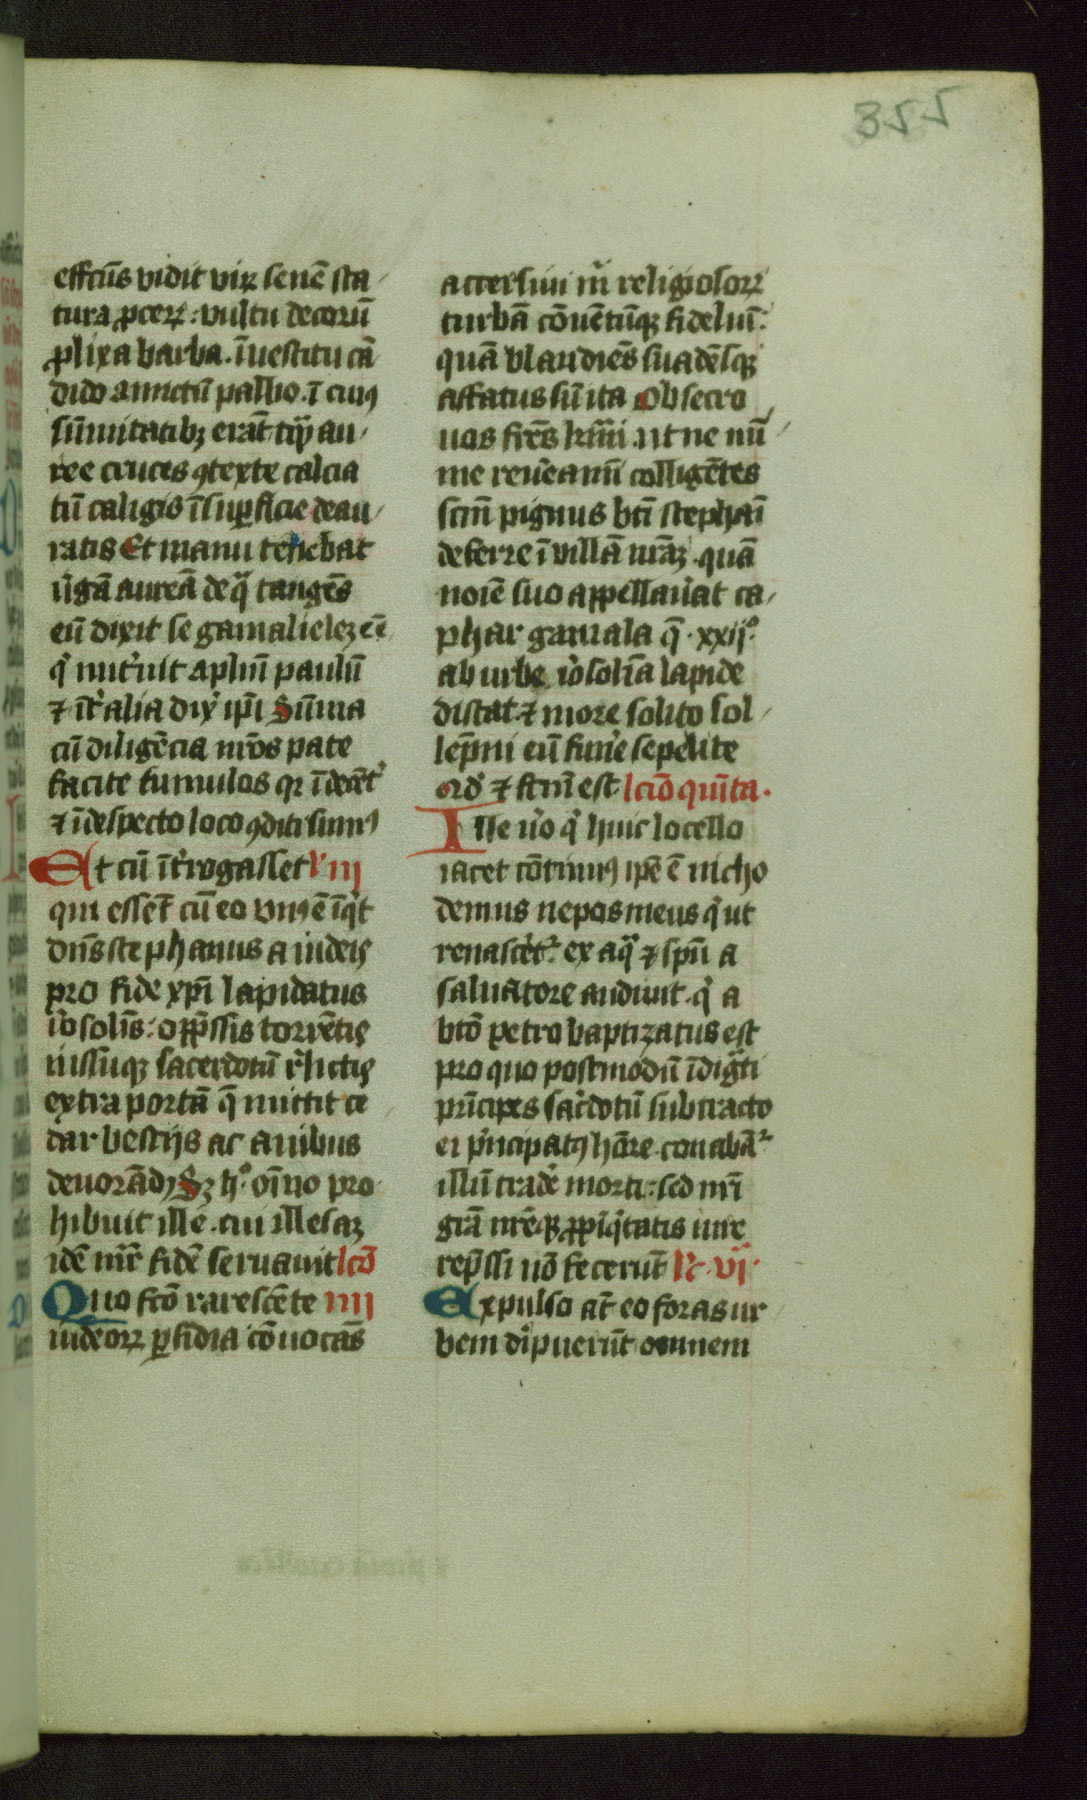 355
effctūs vidit viꝝ senē sta
tura ꝓceꝝ : vultu decorū
ꝓlixa barba . ī uestitu cā
dido amictū pallio . ī cuiꝰ
sūmitatibꝫ erāt tꝑ au
ree cruces ꝯtexte calcia
tū caligis ī suꝑficie deau
ratis Et manu tenebat
ugā aureā de q̄ tangēs
eū dixit se gamalielez eē
q̇ nutˀuit aplūm paulū
⁊ ītˀ alia dixˀ ip̄i Sūma
cū diligēcia nr̄os pate
facite tumulos qꝛ īdecēt᷑
⁊ ī despecto loco ꝯditi sumꝰ
Et cū ītˀrogasset lˀ iij
qui essēt cū eo vnꝰ ē īq̇t
dn̄s stephanus a iudeis
pro fide xp̄i lapidatus
ih̄osolīs : opp̄ssis torrētis
iussuqꝫ sacerdotū rˀlictis
extra portā q̄ mittit ce
dar bestijs ac auibus
deuorādꝰ Sꝫ hˀ oīno pro
hibuit ille . cui illesaꝫ
idē mr̄ fidē seruauit lcō
Quo fcō rarescēte iiij
iudeoꝝ ꝑfidia cōuocās
accersiui mˀ religiosoꝝ
turbā cōuētūqꝫ fideliū :
quā blandiēs suadēsqꝫ
affatus sū ita Obsecro
uos frēs kmī . ut ne nū
me reuˀeamī colligētes
scm̄ pignus btī stephaī
deferre ī villā māꝫ . quā
noīe suo appellauˀat ca
phar gamala q̄ . xxijº
ab urbe ih̄osolīa lapide
distat . ⁊ more solito sol
lēpni eū funˀe sepelite
Qdˀ ⁊ fcm̄ est lciō quīta .
Ille uˀo q̇ huic locello
iacet cōtīnuꝰ ip̄e ē nicho
demus nepos meus q̇ ut
renascēt᷑ ex aq̄ ⁊ sp̄u a
saluatore audiuit . q̇ a
btō petro baptizatus est
pro quo postmodū īdig̓ti
prīcipes sacˀdotū subtracto
ei pˀncipatꝰ hōre . conabāt᷑
illū tradˀe morti : sed mr̄i
grā nrēqꝫ ꝓpīq̇tatis iure
rep̄ssi nō fecerūt lc̄ . vj .
Expulso at̄ eo foras ur
bem diˀpuerūt omnem